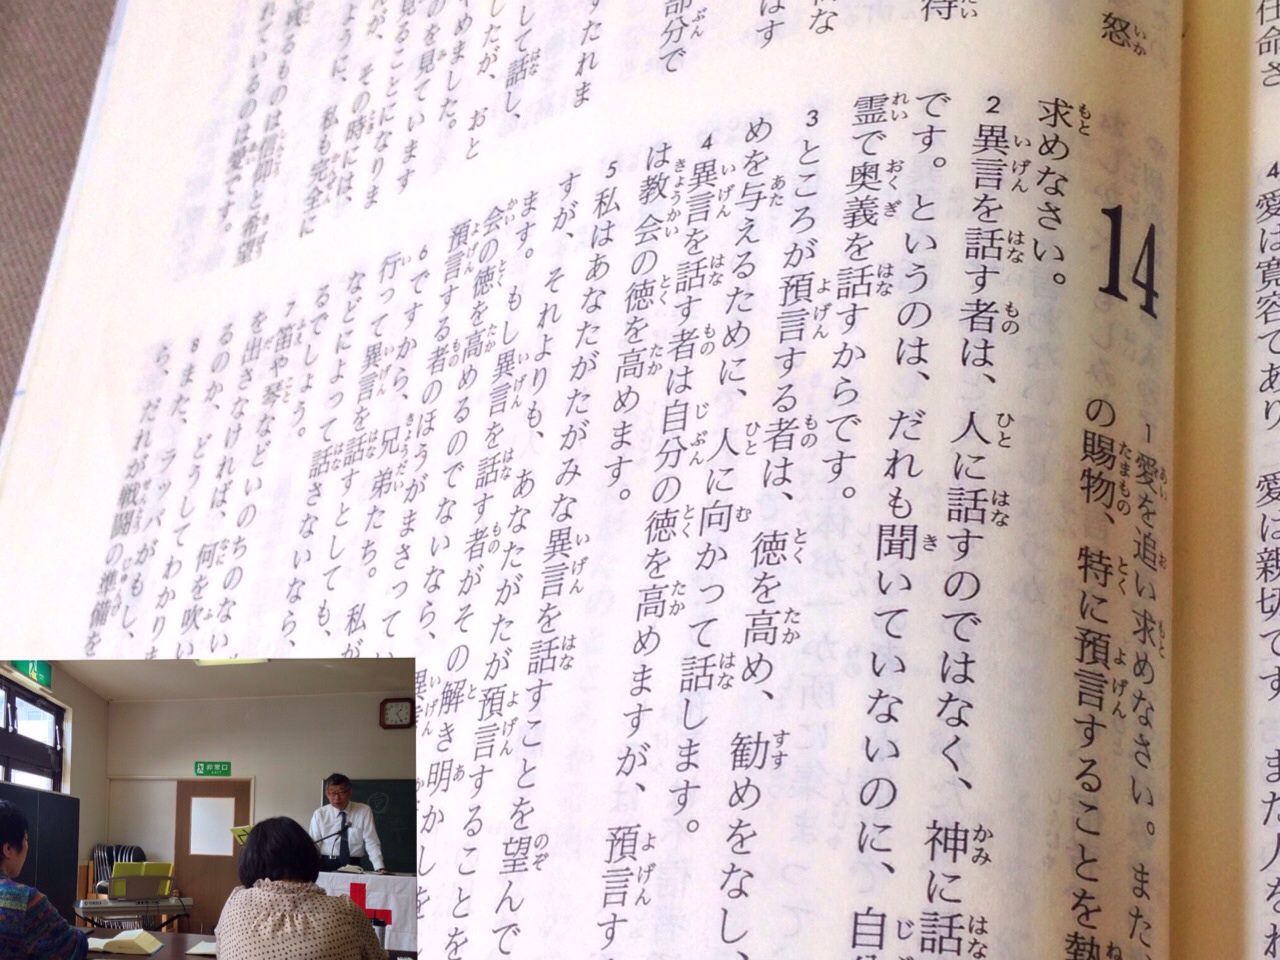 任命さ
4愛は寛容であり
愛は親切です
また人をね
怒
14
1愛を追い求めなさい。また、
の賜物、特に預言することを熱
求めなさい。
2異言を話す者は、人に話すのではなく、神に話
です。というのは、だれも聞いていないのに、自
霊で奥義を話すからです。
3ところが預言する者は、徳を高め、勧めをなし、
めを与えるために、人に向かって話します。
4異言を話す者は自分の徳を高めますが、預言す
は教会の徳を高めます。
5私はあなたがたがみな異言を話すことを望んで
すが、それよりも、あなたがたが預言することを
ます。もし異言を話す者がその解き明かしを
会の徳を高めるのでないなら、異言
預言する者のほうがまさって
6ですから、兄弟たち。私が
行って異言を話すとしても、
などによって話さないなら、
るでしょう。
7笛や琴などいのちのない
を出さなければ、何を吹い
るのか、どうしてわかりま
8また、ラッパがもし、
ら、だれが戦闘の準備を
待
な
はす
部分で
すたれま
して話し、
したが、おと
やめました。
のを見ています
見ることになりま
んが、その時には、
ように、私も完全に
或るものは信仰と希望
れているのは愛です。
非常口